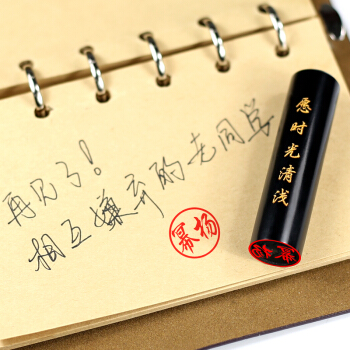 再见了!
相互嫌弃的老同学
幂杨
愿时光清浅